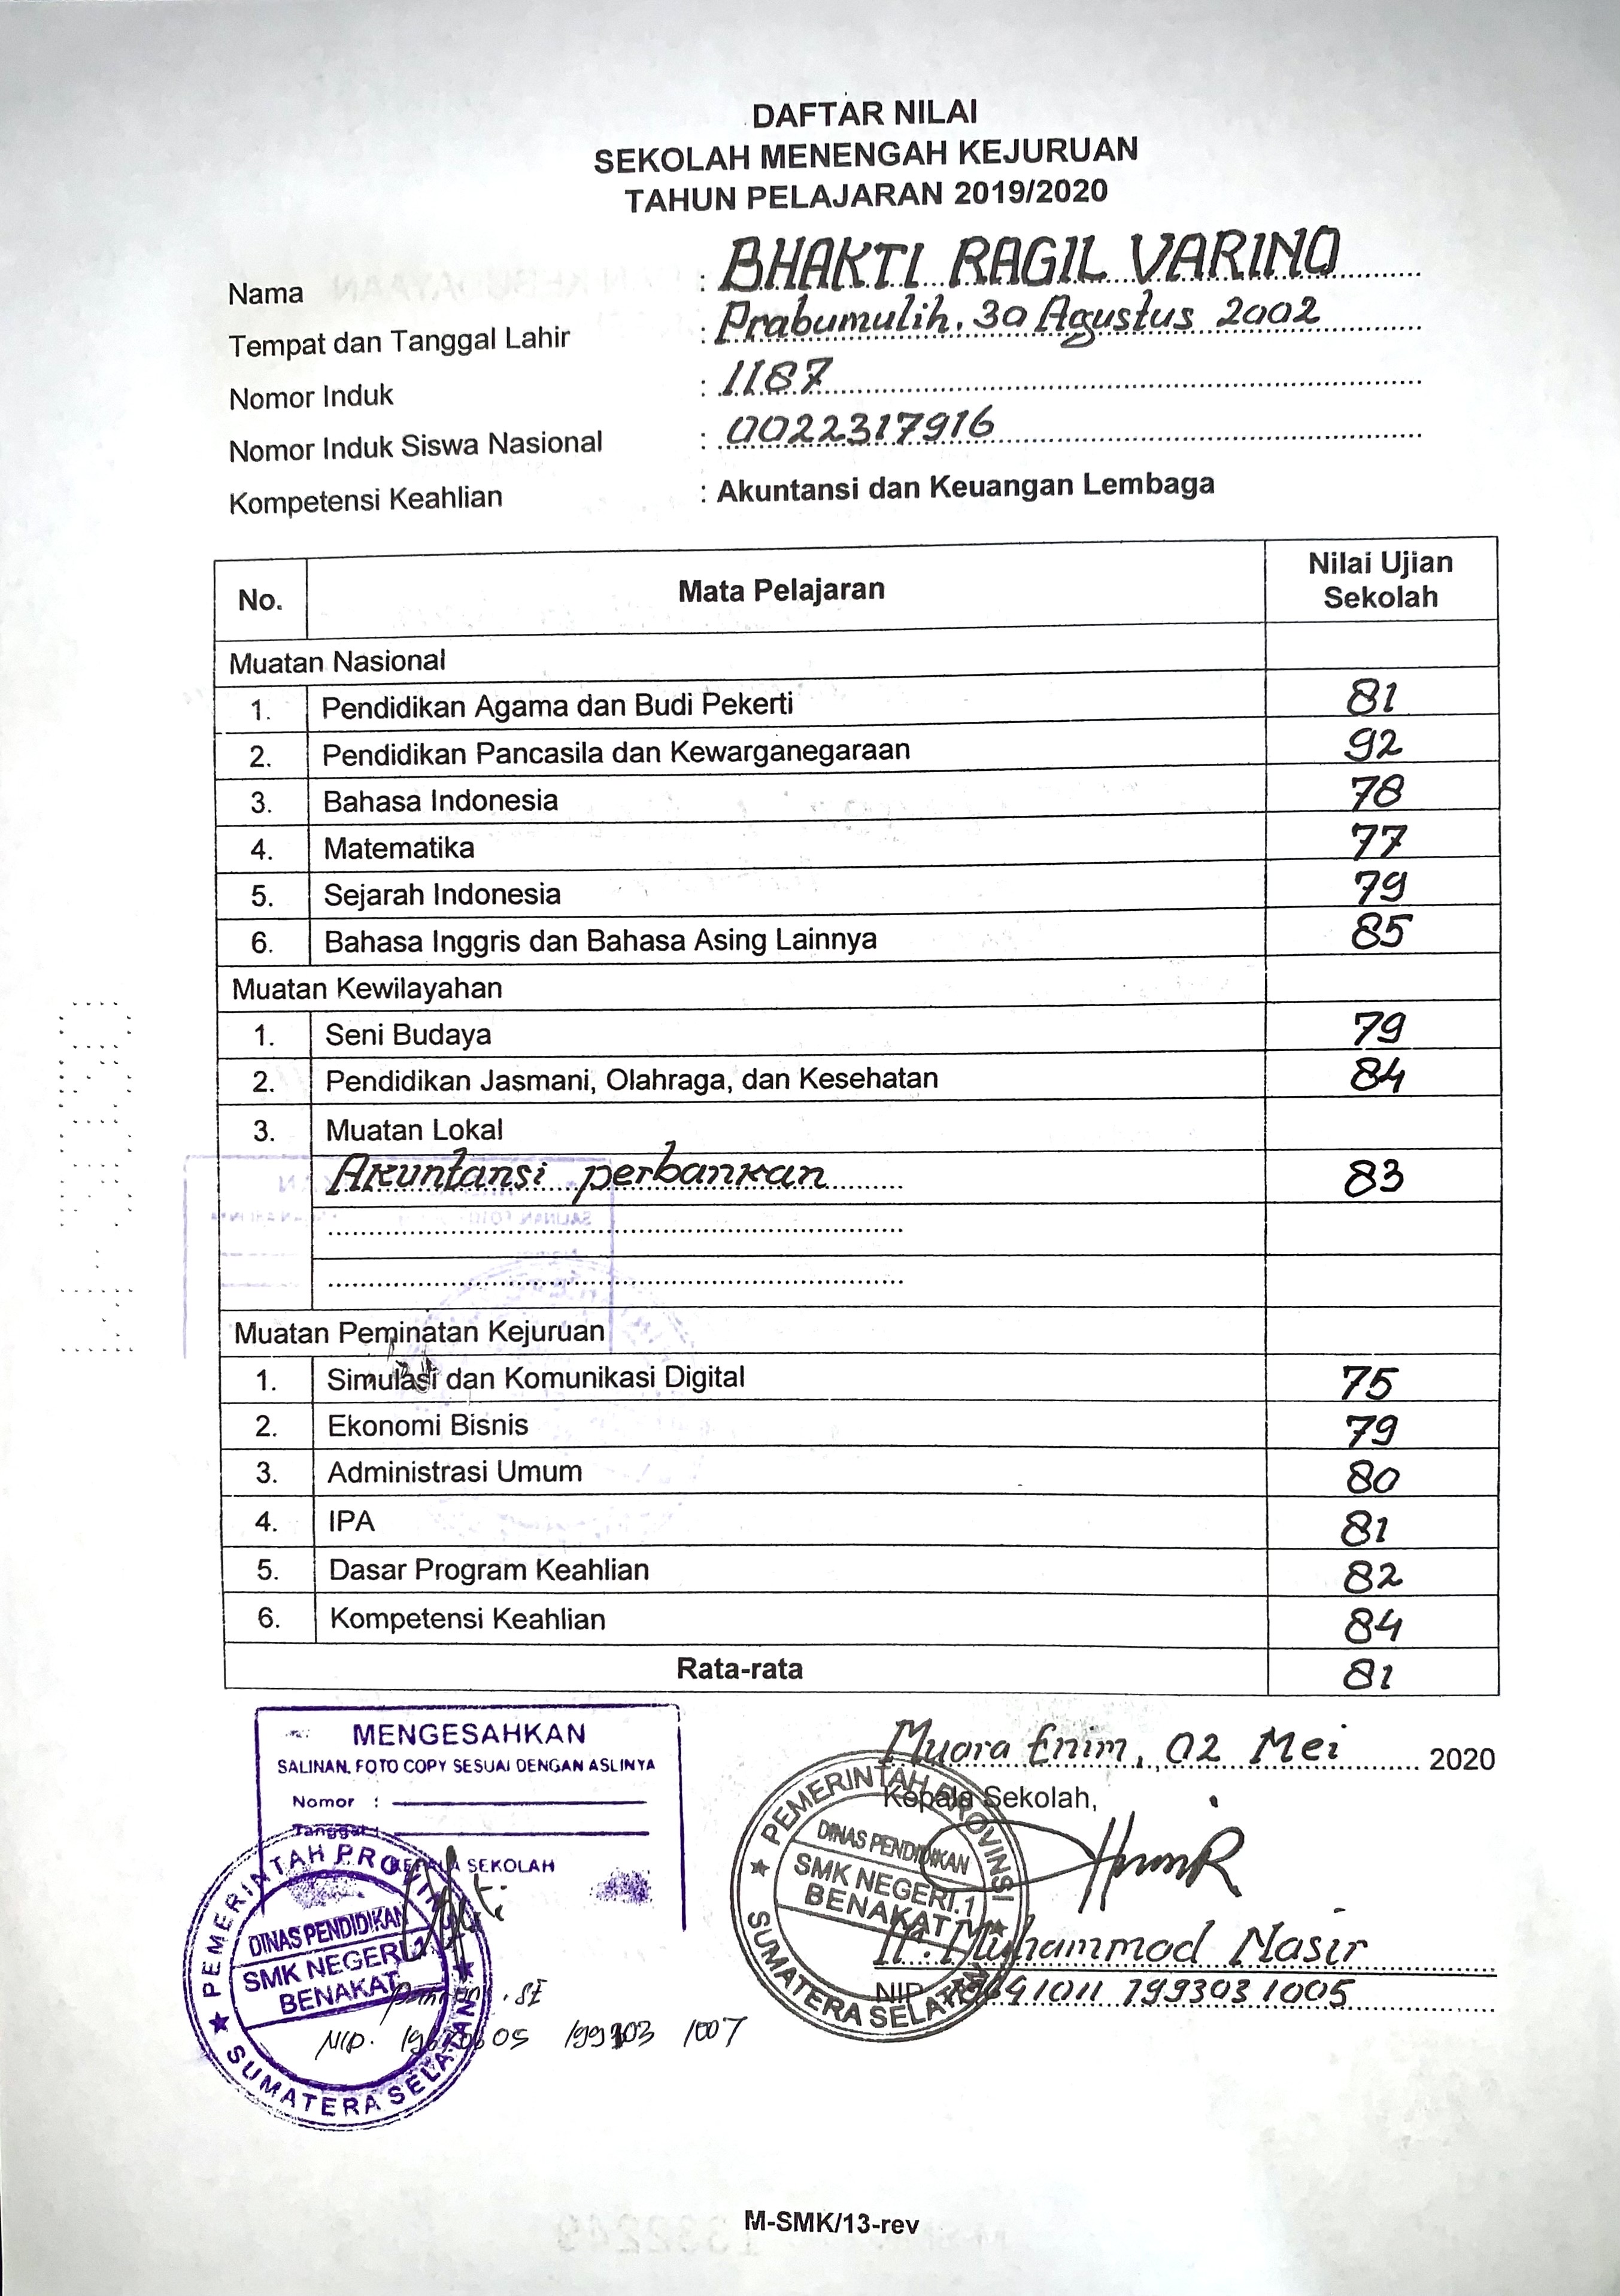 DAFTAR NILAI
SEKOLAH MENENGAH KEJURUAN
TAHUN PELAJARAN 2019/2020
Nama : BHAKTI RAGIL VARINO
Tempat dan Tanggal Lahir : Prabumulih, 30 Agustus 2002
Nomor Induk : 1187
Nomor Induk Siswa Nasional : 0022317916
Kompetensi Keahlian : Akuntansi dan Keuangan Lembaga
No. Mata Pelajaran Nilai Ujian Sekolah
Muatan Nasional
1. Pendidikan Agama dan Budi Pekerti 81
2. Pendidikan Pancasila dan Kewarganegaraan 92
3. Bahasa Indonesia 78
4. Matematika 77
5. Sejarah Indonesia 79
6. Bahasa Inggris dan Bahasa Asing Lainnya 85
Muatan Kewilayahan
1. Seni Budaya 79
2. Pendidikan Jasmani, Olahraga, dan Kesehatan 84
3. Muatan Lokal
Akuntansi perbankan 83
Muatan Peminatan Kejuruan
1. Simulasi dan Komunikasi Digital 75
2. Ekonomi Bisnis 79
3. Administrasi Umum 80
4. IPA 81
5. Dasar Program Keahlian 82
6. Kompetensi Keahlian 84
Rata-rata 81
Muara Enim, 02 Mei 2020
Kepala Sekolah,
PEMERINTAH PROVINSI
DINAS PENDIDIKAN
SMK NEGERI.1
BENAKAT
SUMATERA SELATAN
H. Muhammad Nasir
NIP 199303 1005
MENGESAHKAN
SALINAN. FOTO COPY SESUAI DENGAN ASLINYA
Nomor :
Tanggal :
KEPALA SEKOLAH
PEMERINTAH PROVINSI
DINAS PENDIDIKAN
SMK NEGERI.1
BENAKAT
SUMATERA SELATAN
SE
NIP. 1007
M-SMK/13-rev